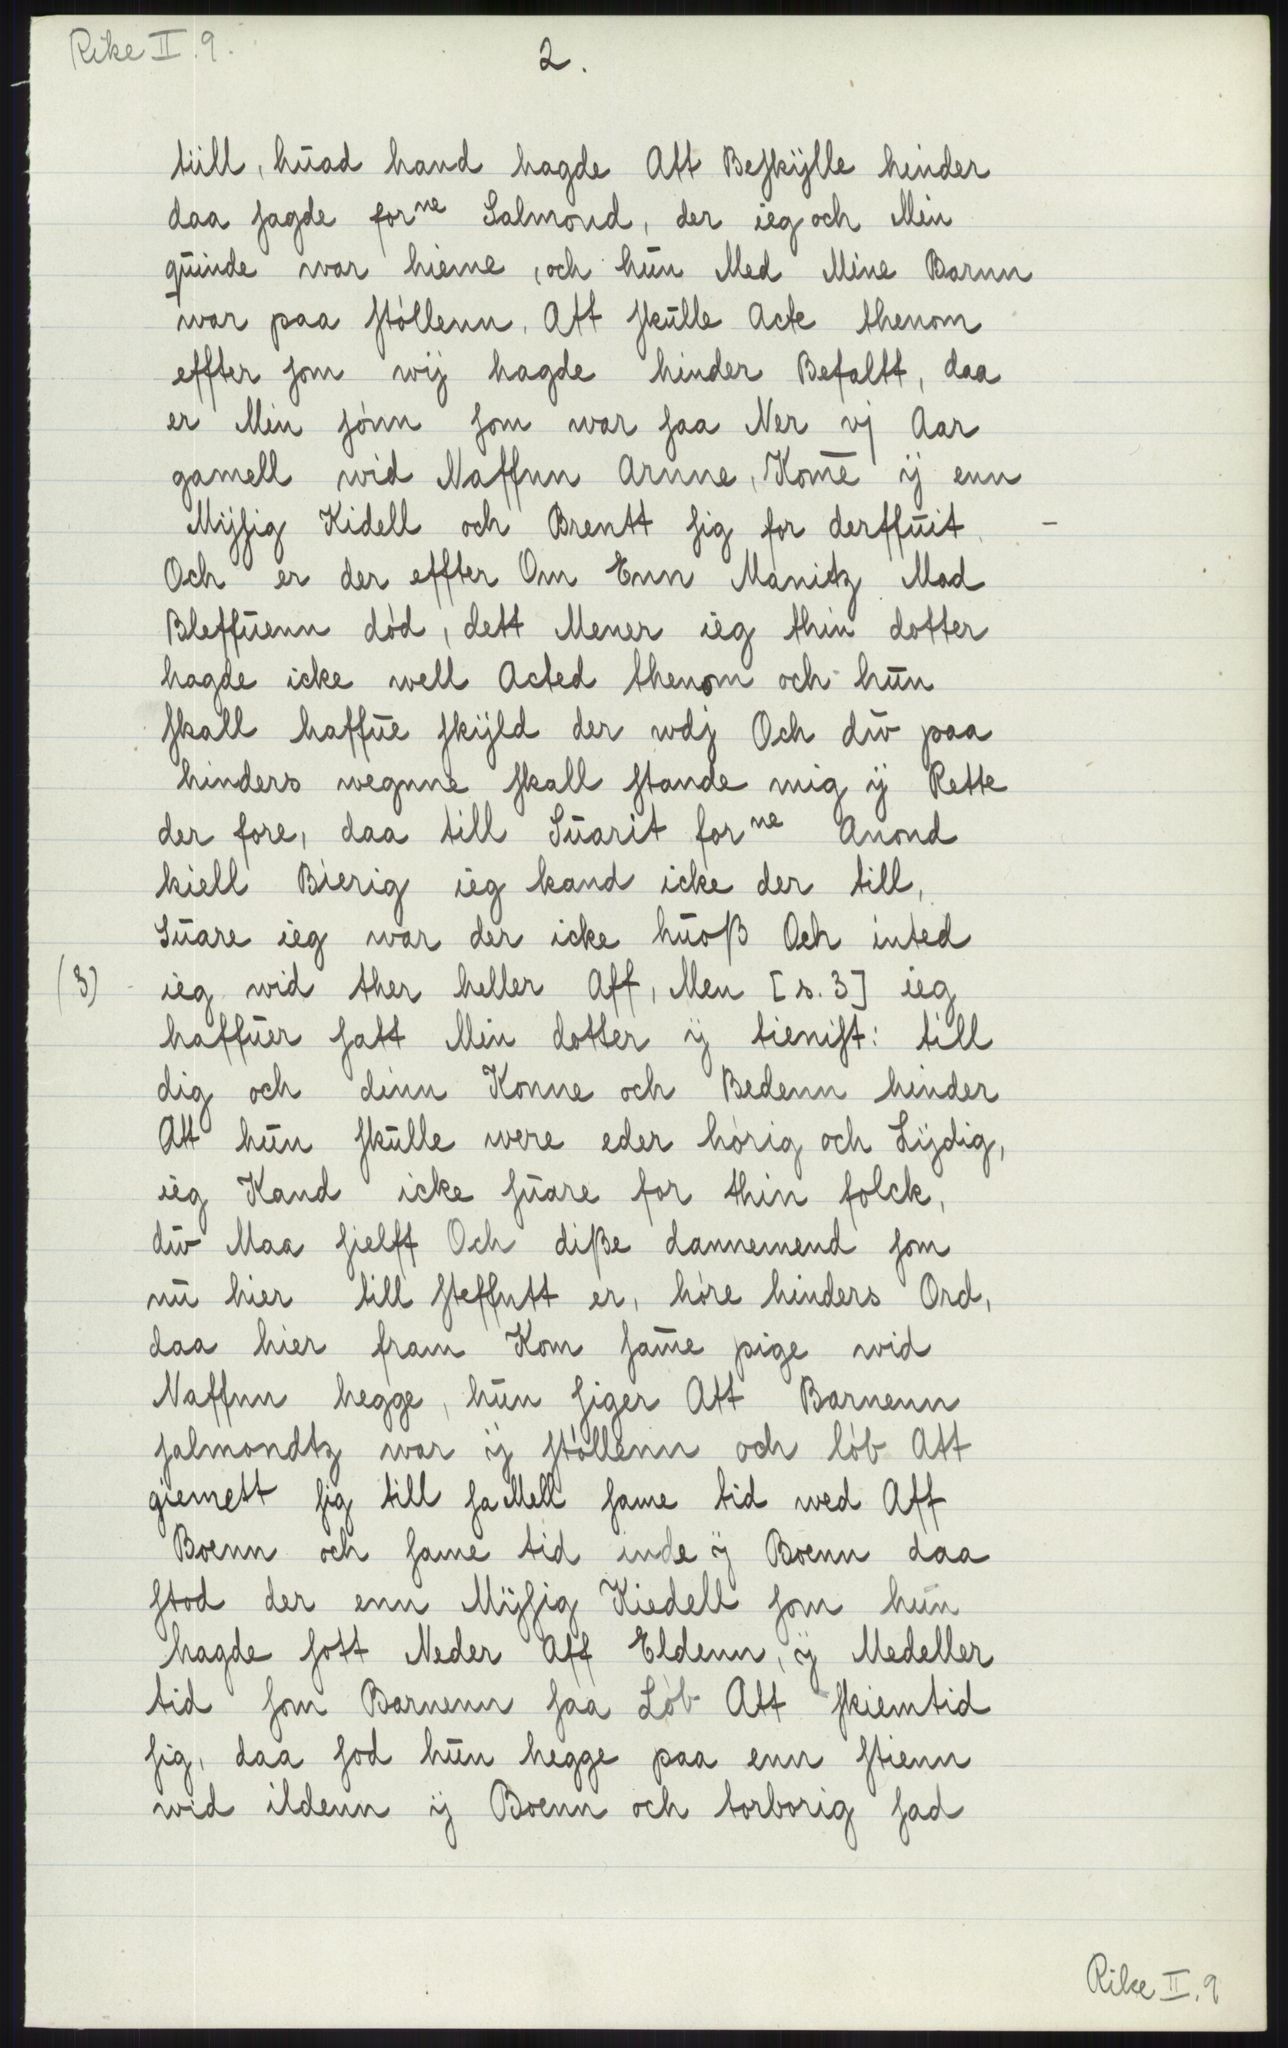 Rike II. 9.
2.
tiill, huad hand hagde Att Beskÿlle hinder
daa sagde forne Salmond, der ieg och Min
quinde war hieme, och hun Med Mine Barnn
war paa støllenn, Att skulle Acte thenom
effter som wij hagde hinder Befaltt, daa
er Min sønn som war saa Ner vj Aar
gamell wid Naffnn Arnne, Kome ÿ enn
Mÿsig Kidell och Brentt sig for derffuit
Och er der effter Om Enn Manitz Mad
Bleffuenn død, dett Mener ieg thin dotter
hagde icke well Acted thenom och hun
skall haffue skÿld der wdj Och dw paa
hinders wegnne skall stande mig ÿ Rette
der fore, daa till Suarit forne Anond
kiell Bierig ieg kand icke der till,
Suare ieg war der icke huoß Och inted
(3) ieg wid ther heller Aff, Men [s. 3] ieg
haffuer satt Min dotter ÿ tienist: till
dig och dinn Konne och Bedenn hinder
Att hun skulle were eder hørig och Lÿdig,
ieg Kand icke suare for thin folck,
dw Maa sielff Och diße dannemend som
nu hier till steffntt er, høre hinders Ord,
daa hier fram Kom same pige wid
Naffnn hegge, hun siger Att Barnenn
salmondtz war ÿ støllenn och løb Att
giemett sig till saMell same tid wed Aff
Boenn och same tid inde ÿ Boenn daa
stod der enn Mÿsig Kiedell som hun
hagde sott Neder Aff Eldenn, ÿ Medeller
tid som Barnenn saa Løb Att skiemtid
sig, daa sod hun hegge paa enn stienn
wid ildenn ÿ Boenn och torborig sad
Rike II, 9